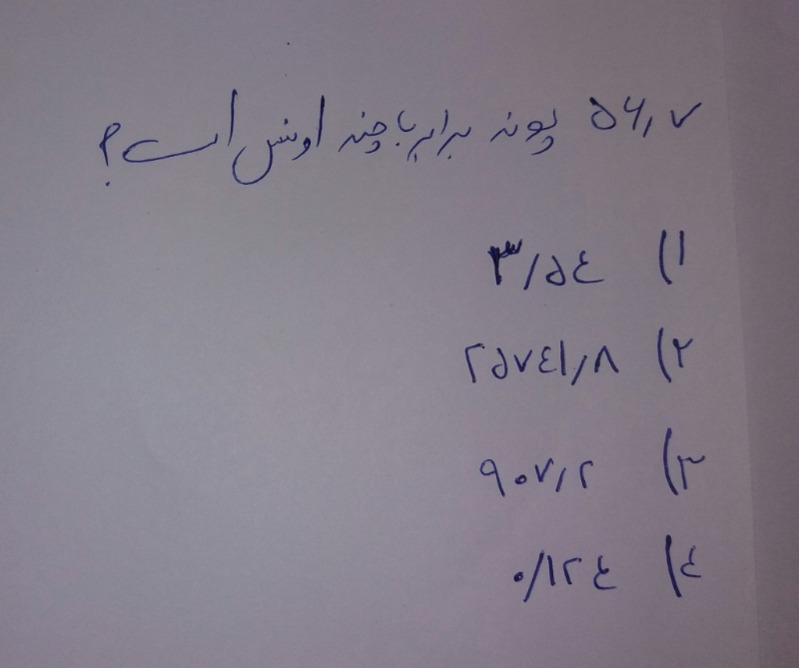 ۵۶٫۷ پوند برابر با چند اونس است؟
۱) ۳/۵۴
۲) ۲۵۷۴۱٫۸
۳) ۹۰۷٫۲
۴) ۰/۱۲۴